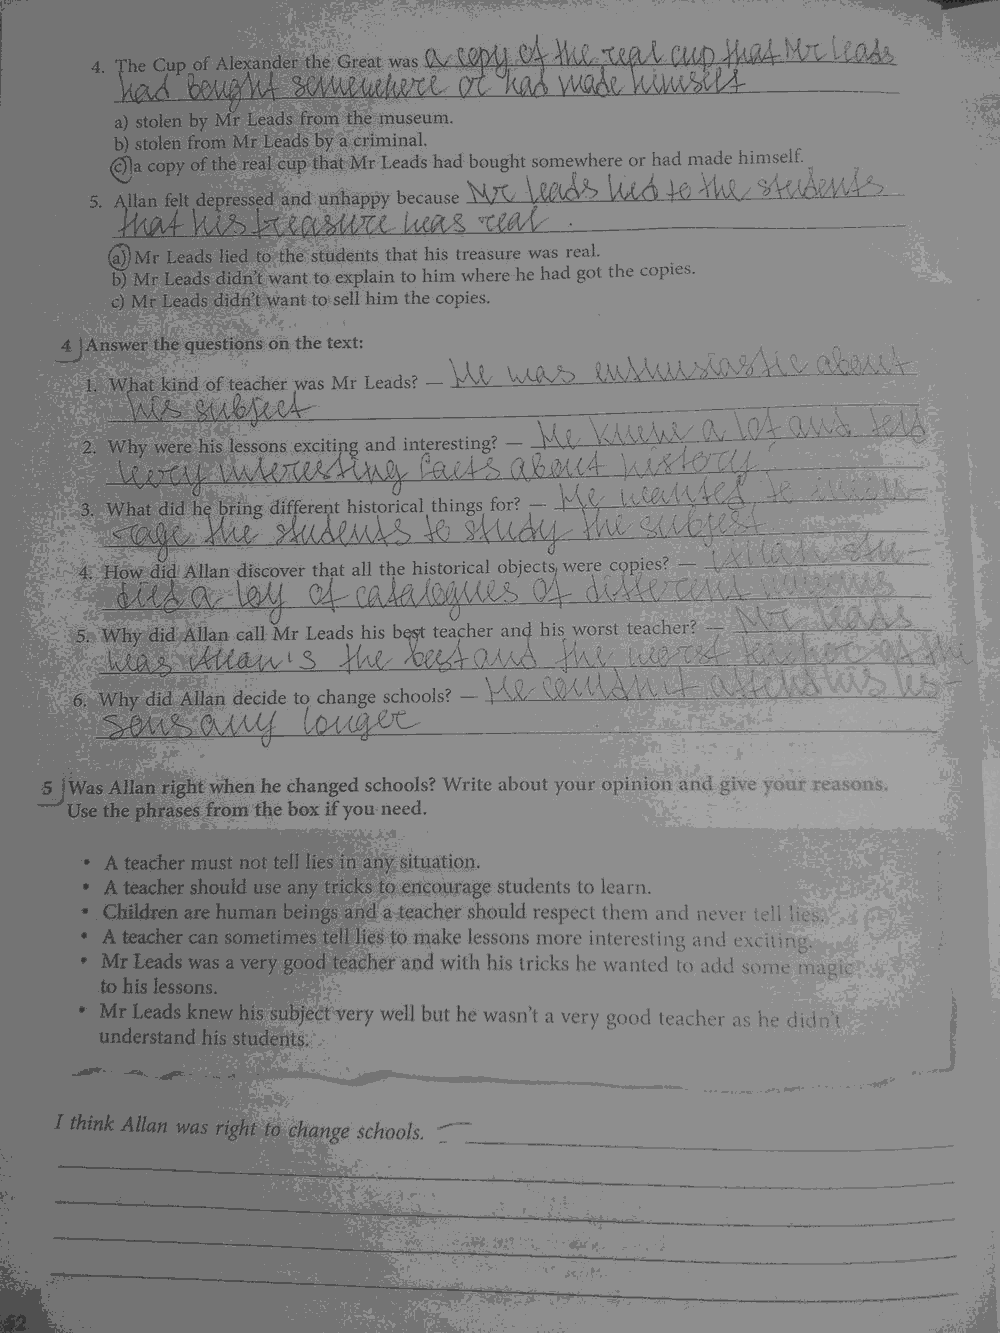 4. The Cup of Alexander the Great was a copy of the real cup that Mr Leads
had bought somewhere or had made himself
a) stolen by Mr Leads from the museum.
b) stolen from Mr Leads by a criminal.
c) a copy of the real cup that Mr Leads had bought somewhere or had made himself.
5. Allan felt depressed and unhappy because Mr Leads lied to the students
that his treasure was real.
a) Mr Leads lied to the students that his treasure was real.
b) Mr Leads didn't want to explain to him where he had got the copies.
c) Mr Leads didn't want to sell him the copies.
4 Answer the questions on the text:
1. What kind of teacher was Mr Leads? — He was enthusiastic about
his subject
2. Why were his lessons exciting and interesting? — He knew a lot and told
very interesting facts about history.
3. What did he bring different historical things for? — He wanted to
-rage the students to study the subject
4. How did Allan discover that all the historical objects were copies? — Allan stu-
died a loy of catalogues of different
5. Why did Allan call Mr Leads his best teacher and his worst teacher? — Mr Leads
was Allan's the best and the worst teacher at the
6. Why did Allan decide to change schools? — He couldn't attend his les-
sons any longer
5 Was Allan right when he changed schools? Write about your opinion and give your reasons.
Use the phrases from the box if you need.
• A teacher must not tell lies in any situation.
• A teacher should use any tricks to encourage students to learn.
• Children are human beings and a teacher should respect them and never tell lies.
• A teacher can sometimes tell lies to make lessons more interesting and exciting.
• Mr Leads was a very good teacher and with his tricks he wanted to add some magic
to his lessons.
• Mr Leads knew his subject very well but he wasn't a very good teacher as he didn't
understand his students.
I think Allan was right to change schools.
52